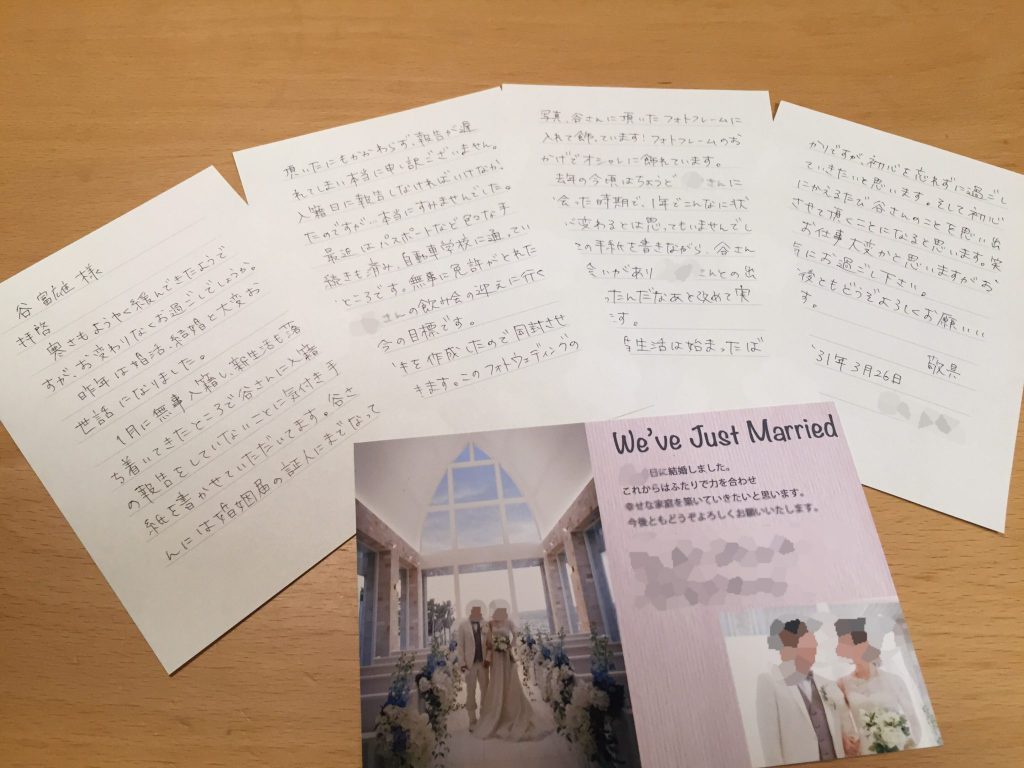 谷富雄様
拝啓
寒さもようやく緩んできたようで
すが、お変わりなくお過ごしでしょうか。
昨年は婚活、結婚と大変お
世話になりました。
1月に無事入籍し、新生活も落
ち着いてきたところで谷さんに入籍
の報告をしていないことに気付き手
紙を書かせていただいてます。谷さ
んには婚姻届の証人にまでなって
頂いたにもかかわらず、報告が遅
れてしまい本当に申し訳ございません。
入籍日に報告しなければいけなか
たのですが…本当にすみませんでした。
最近はパスポートなど色々な手
続きも済み、自動車学校に通ってい
ところです。無事に免許がとれた
さんの飲み会の迎えに行く
今の目標です。
キを作成したので同封させ
ます。このフォトウェディングの
写真、谷さんに頂いたフォトフレームに
入れて飾っています！フォトフレームのお
かげでオシャレに飾れています。
去年の今頃はちょうど さんに
会った時期で、1年でこんなに状
変わるとは思ってもいませんでし
この手紙を書きながら、谷さん
会いがあり さんとの出
ったんだなあと改めて実
す。
生活は始まったば
かりですが、初心を忘れずに過ごし
ていきたいと思います。そして初心
にかえるたび谷さんのことを思い出
させて頂くことになると思います。実
お仕事大変かと思いますがお
気にお過ごし下さい。
後ともどうぞよろしくお願いい
す。
敬具
'31年3月26日
We've Just Married
日に結婚しました。
これからはふたりで力を合わせ
幸せな家庭を築いていきたいと思います。
今後ともどうぞよろしくお願いいたします。